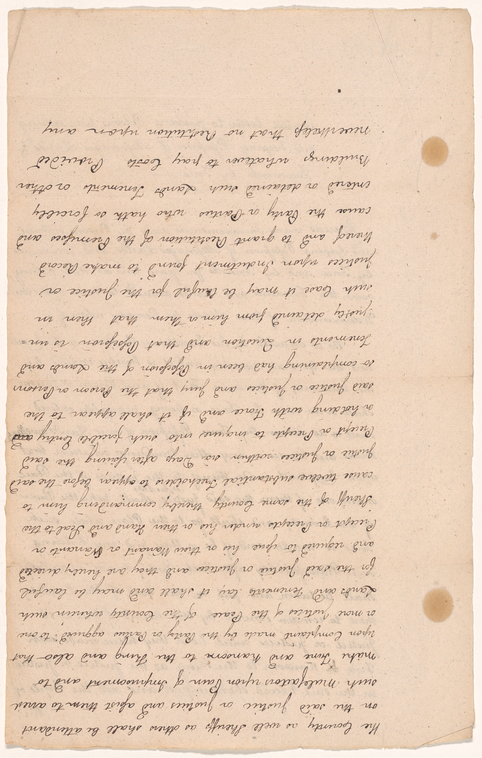 the County as well Sheriffs as others shall be attendant
on the said Justice or Justices and assist them to arrest
such Malefactors upon Pain of Imprisonment and to
make Fine and Ransom to the King and also that
upon Complaint made by the Party or Parties aggrieved, to one
or more Justices of the Peace of the County wherein such
Lands and Tenements lay it shall and may be lawful
for the said Justice or Justices and they are hereby directed
and required to issue his or their Warrant or Warrants or
Precept or Precepts under his or their Hand and Seal to the
Sheriff of the same County thereby commanding him to
cause twelve substantial Freeholders to appear before the said
Justice or Justices within six Days after issuing the said
Precept or Precepts to inquire into such forcible Entry and
or holding with Force and if it shall appear to the
said Justice or Justices and Jury that the Person or Persons
so complaining had been in Possession of the Lands and
Tenements in Question and that Possession is un-
justly detained from him or them that then in
such Case it may be lawful for the Justice or
Justices upon Indictment found to make Record
thereof and to grant Restitution of the Premisses and
cause the Party or Parties who hath so forcibly
entered or detained such Lands Tenements or other
Buildings whatever to pay Costs Provided
nevertheless that no Restitution upon any